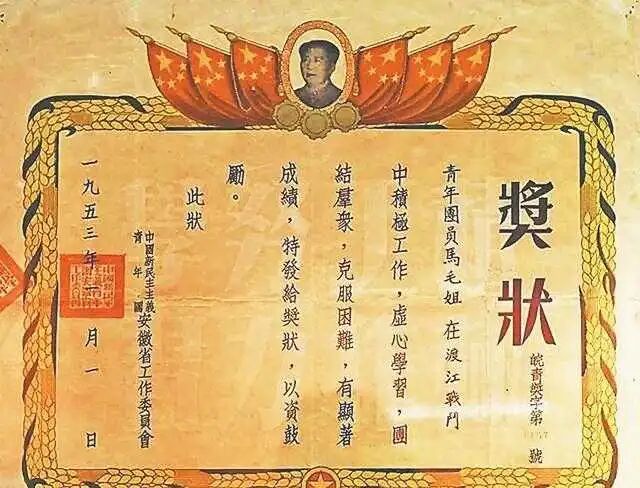 獎狀
皖青獎字第
號
青年團員馬毛姐 在渡江戰鬥
中積極工作，虛心學習，團
結羣衆，克服困難，有顯著
成績，特發給獎狀，以資鼓
勵。
此狀
中國新民主主義
青年團
安徽省工作委員會
一九五三年一月一日